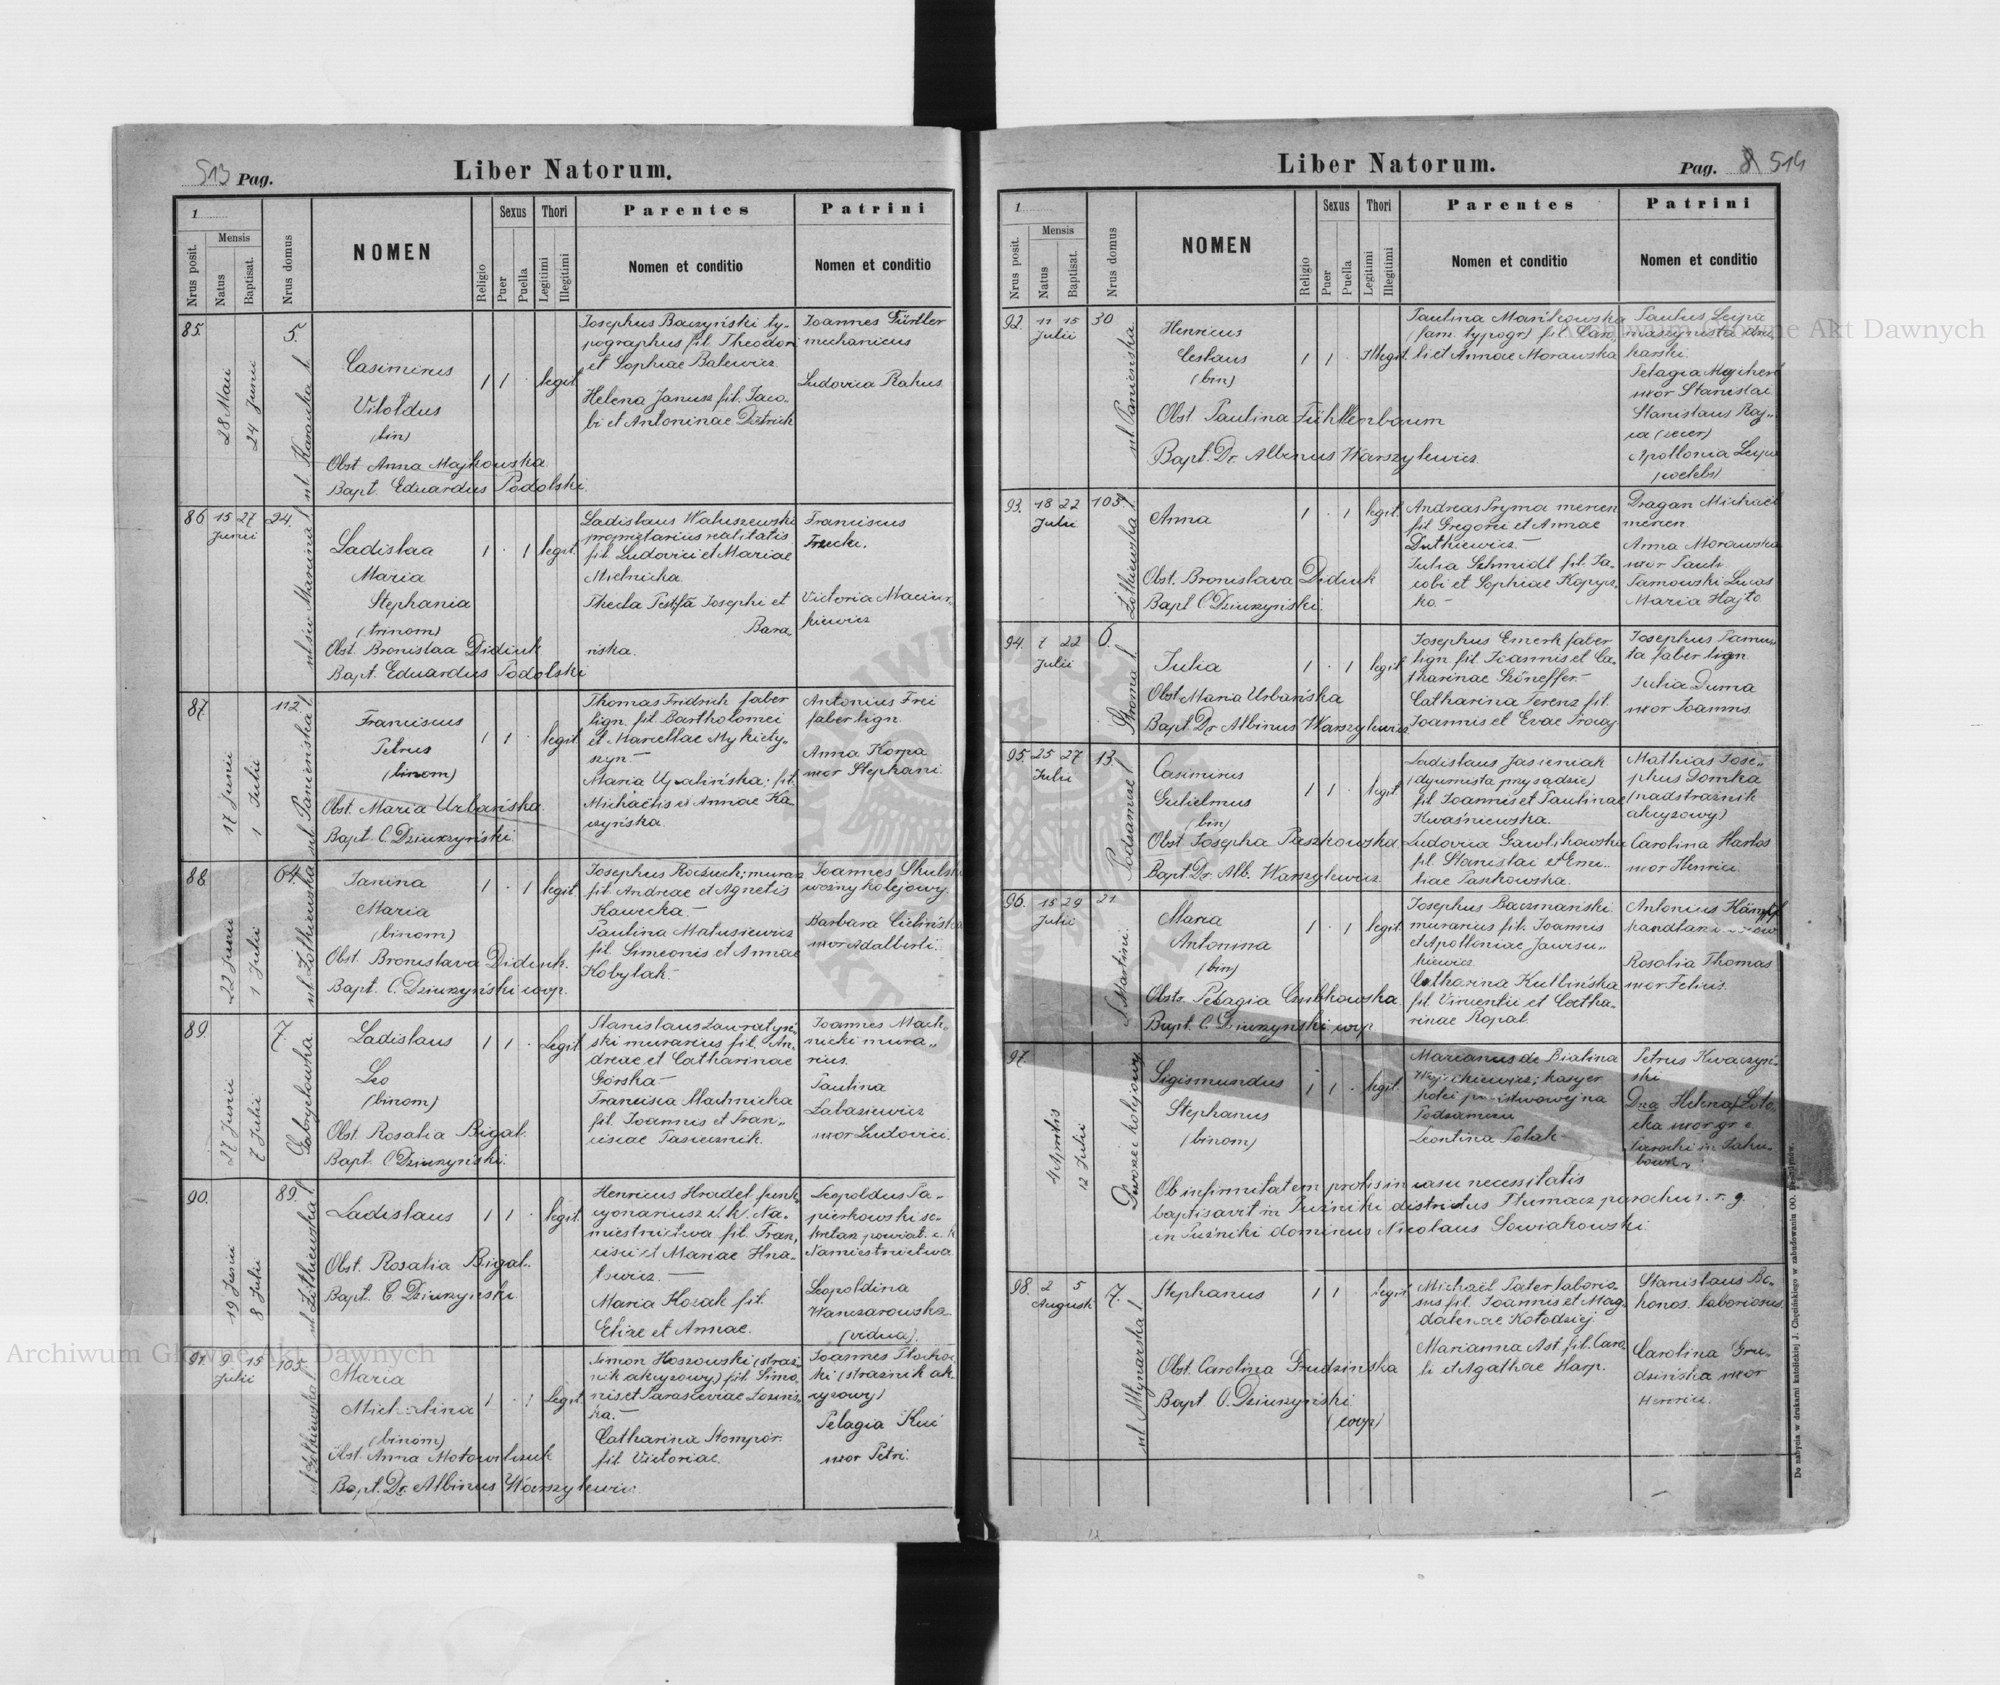 513 Pag.
Liber Natorum.
1
Mensis
Nrus posit.
Natus
Baptisat.
Nrus domus
NOMEN
Religio
Sexus
Puer
Puella
Thori
Legitimi
Illegitimi
Parentes
Nomen et conditio
Patrini
Nomen et conditio
85.
28 Maii
24 Junii
5.
Casimirus
Vitoldus
(bin)
Obst. Anna Majkowska
Bapt. Eduardus Podolski
1 1 · legit.
Josephus Baczyński ty-
pographus fil. Theodori
et Sophiae Balewicz
Helena Janusz fil. Jaco-
bi et Antoninae
Joannes Fürtler
mechanicus
Ludovica Rahus.
86
15 27
Junii
24.
Ladislaa
Maria
Stephania
(trinom)
Obst. Bronislaa Didiuk
Bapt. Eduardus Podolski
1 · 1 legit.
Ladislaus Waluszewski
proprietarius realitatis
fil. Ludovici et Mariae
Mielnicka.
Thecla Josephi et
Bara-
ńska.
Franciscus
Victoria Maciur-
kiewicz
87.
17 Junii
1 Julii
112
ul. Panieńska
Franciscus
Petrus
(binom)
Obst. Maria Urbańska.
Bapt. C. Dziurzyński.
1 1 · legit
Thomas Fridrich faber
lign. fil. Bartholomei
et Marcellae Mykiety-
szyn —
Maria fil.
Michaëlis et Annae Ka-
czyńska.
Antonius Frei
faber lign.
Anna Korpa
uxor Stephani.
88.
22 Junii
1 Julii
64.
ul. Żółkiewska
Janina
Maria
(binom)
Obst. Bronislava Didiuk.
Bapt. C. Dziurzyński coop.
1 · 1 legit
murar.
fil. Andreae et Agnetis
Kawecka. —
Paulina Matusiewicz
fil. Simeonis et Annae
Kobylak. —
Joannes Skulski
woźny kolejowy.
Barbara Cielińska
uxor Adalberti.
89.
27 Junii
7 Julii
7.
Gabryelowka
Ladislaus
Leo
(binom)
Obst. Rosalia Bigal.
Bapt. C. Dziurzyński.
1 1 · Legit
Stanislaus Lawratyń-
ski murarius fil. An-
dreae et Catharinae
Górska —
Francisca Machnicka
fil. Joannis et Fran-
ciscae Tasiecznik.
Joannes Mach-
nicki mura-
rius.
Paulina
Labasiewicz
uxor Ludovici.
90.
19 Junii
8 Julii
89.
ul. Żółkiewska
Ladislaus
Obst. Rosalia Bigal.
Bapt. C. Dziurzyński
1 1 · legit.
Henricus Hradel funk-
cyonariusz c. k. Na-
miestnictwa fil. Fran-
cisci et Mariae Hna-
towicz. —
Maria Kozak fil.
Eliae et Annae.
Leopoldus Pa-
pierkowski se-
kretarz powiat. c. k
Namiestnictwa
Leopoldina
Wanczarowska
(vidua).
91.
9 15
Julii
105.
ul. Żółkiewska
Maria
Michalina
(binom)
Obst. Anna Motowilczuk
Bapt. Dr. Albinus Warszylewicz
1 · 1 Legit.
Simon Hoszowski (straż-
nik akcyzowy) fil. Simo-
nis et Parasceviae Łosińs-
ka. —
Catharina Stompór
fil. Victoriae.
Joannes
ki (strażnik ak-
cyzowy)
Pelagia Kuć
uxor Petri.
Liber Natorum.
Pag. 8 514
1
Mensis
Nrus posit.
Natus
Baptisat.
Nrus domus
NOMEN
Religio
Sexus
Puer
Puella
Thori
Legitimi
Illegitimi
Parentes
Nomen et conditio
Patrini
Nomen et conditio
92.
11 15
Julii
30
ul. Panieńska
Henricus
Ceslaus
(bin)
Obst. Paulina Fühllenbaum
Bapt. Dr. Albinus Warszylewicz.
1 1 · Illegit
Paulina Mańkowska
(fam. typogr.) fil. Caro-
li et Annae Morawska
Paulus Lejpa
maszynista dru-
karski.
Pelagia
uxor Stanislai
Stanislaus Raj-
ca
Apollonia Lejpa
(coelebs)
93.
18 22
Julii
105.
Żółkiewska
Anna
Obst. Bronislava Didiuk
Bapt. C. Dziurzyński.
1 · 1 legit.
Andreas Pryma mercen
fil. Gregorii et Annae
Dutkiewicz. —
Julia Schmidt fil. Ja-
cobi et Sophiae Kopycz-
ko. —
Dragan Michaël
mercen.
Anna Morawska
uxor Pauli.
Tarnowski Lucas
Maria Hajto.
94.
7 22
Julii
0.
Stroma
Julia
Obst. Maria Urbańska
Bapt. Dr Albinus Warszylewicz
1 · 1 legit
Josephus Emerk faber
lign. fil. Joannis et Ca-
tharinae Schöneffer. —
Catharina Ferenz fil.
Joannis et Evae Procaj
Josephus Pamu-
ła faber lign.
Julia Duma
uxor Joannis
95.
25 27
Julii
13.
Podzamcze
Casimirus
Gulielmus
(bin)
Obst. Josepha Paszkowska
Bapt. Dr. Alb. Warszylewicz
1 1 · legit
Ladislaus Jasieniak
(dyurnista przy sądzie)
fil. Joannis et Paulinae
Kwaśniewska.
Ludovica Gawlikowska
fil. Stanislai et Emi-
liae Paszkowska.
Mathias Jose-
phus Domka
(nadstrażnik
akcyzowy)
Carolina Harlos
uxor Henrici.
96.
15 29
Julii
21.
S. Martini.
Maria
Antonina
(bin)
Obstr. Pelagia Czubkowska
Bapt. C. Dziurzyński coop
1 · 1 legit
Josephus Baczmański
murarius fil. Joannis
et Apolloniae Jawrsu-
kiewicz
Catharina Kutlińska
fil. Vincentii et Catha-
rinae Ropal.
Antonius Kämpf
Rosalia Thomas
uxor Felicis.
97.
4 Aprilis
12 Julii
Dworzec kolejowy
Sigismundus
Stephanus
(binom)
1 1 · legit
Marianus de Bialina
kasyer
kolei państwowej na
Podzamczu
Leontina Polak
Petrus Kwaczyń-
ski
Dna Helena Łoto-
cka uxor gr. c.
Ob infirmitatem prolis in casu necessitatis
baptisavit in Puźniki districtus Tłumacz parochus r. g.
in Puźniki dominus Nicolaus Sowiakowski.
98.
2 5
Augusti
7.
ul. Młynarska
Stephanus
Obst. Carolina Grudzińska
Bapt. C. Dziurzyński
(coop)
1 1 legit
Michaël Pater laborio-
sus fil. Joannis et Mag-
dalenae Kołodziej
Marianna Ast fil. Caro-
li et Agathae Harp.
Stanislaus Bo-
honos. laboriosus
Carolina Gru-
dzińska uxor
Henrici.
Archiwum Główne Akt Dawnych
Archiwum Główne Akt Dawnych